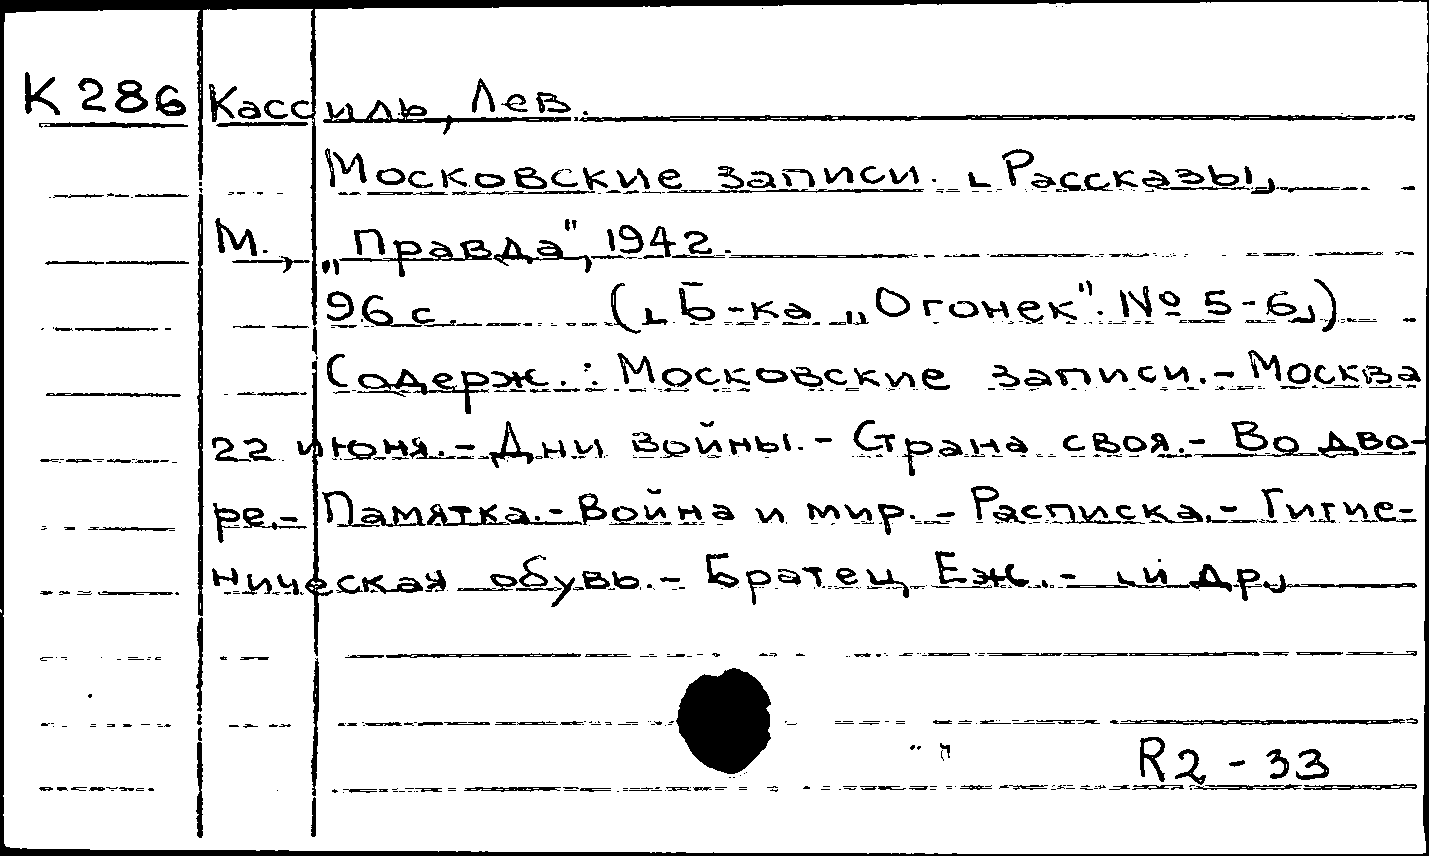 К 286 Кассиль, Лев.
Московские записи. [Рассказы]
М., „Правда", 1942.
96 с. ([Б-ка „Огонек". № 5-6])
Содерж.: Московские записи.- Москва
22 июня.- Дни войны.- Страна своя.- Во дво-
ре.- Памятка.- Война и мир.- Расписка.- Гигие-
ническая обувь.- Братец Еж.- [и др]
R2-33